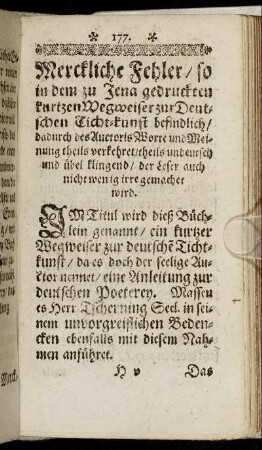 * 177. *
Merckliche Fehler/ so
in dem zu Jena gedruckten
kurtzen Wegweiser zur Deut-
schen Ticht-kunst befindlich/
dadurch des Auctoris Worte und Mei-
nung theils verkehret/ theils undeutsch
und übel klingend/ der Leser auch
nicht wenig irre gemachet
wird.
IM Titul wird dieß Büch-
lein genannt/ ein kurtzer
Wegweiser zur deutschē Ticht-
kunst/ da es doch der seelige Au-
ctor nennet/ eine Anleitung zur
deutschen Poeterey. Massen
es Herr Tscherning Seel. in sei-
nem unvorgreiflichen Beden-
cken ebenfalls mit diesem Nah-
men anführet.
H v Das